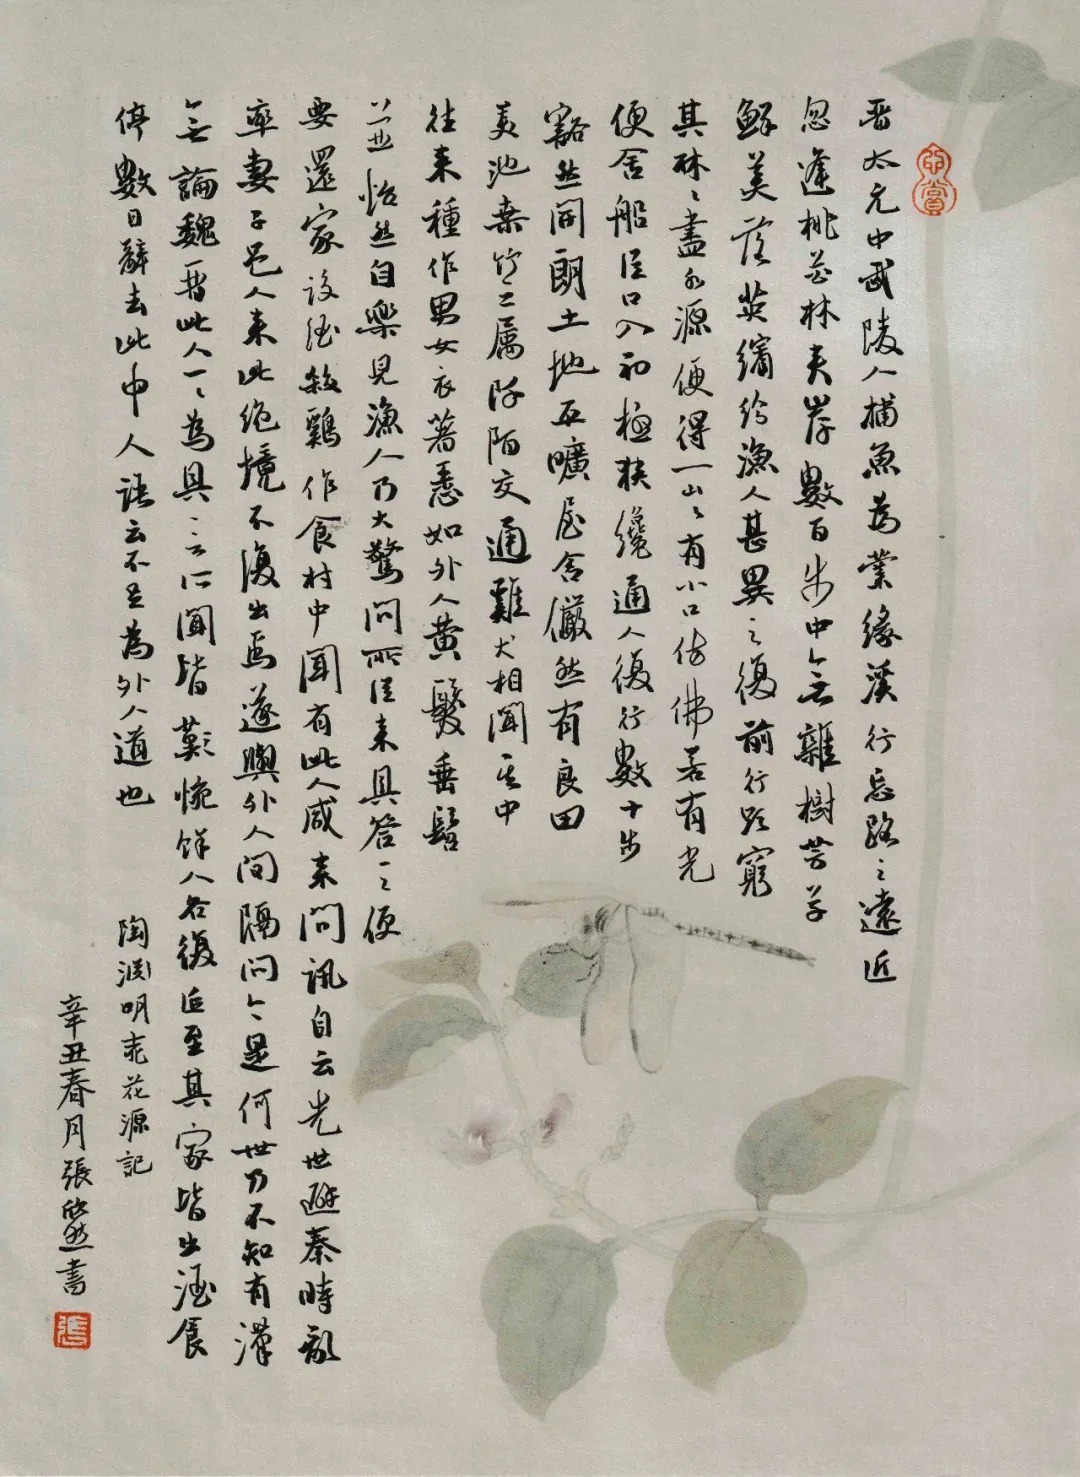 晋太元中武陵人捕魚為業緣溪行忘路之遠近
忽逢桃花林夹岸數百步中無雜樹芳草
鮮美落英繽紛漁人甚異之復前行欲窮
其林々盡水源便得一山々有小口仿佛若有光
便舍船從口入初極狹纔通人復行數十步
豁然開朗土地平曠屋舍儼然有良田
美池桑竹之属阡陌交通雞犬相聞其中
往来種作男女衣著悉如外人黄髮垂髫
並怡然自樂見漁人乃大驚問所從来具答之便
要還家設酒殺鷄作食村中聞有此人咸来問訊自云先世避秦時亂
率妻子邑人来此绝境不復出焉遂與外人間隔問今是何世乃不知有漢
無論魏晋此人一々為具言所聞皆歎惋餘人各復延至其家皆出酒食
停數日辭去此中人語云不足為外人道也
陶渊明桃花源記
辛丑春月張欣然書
張